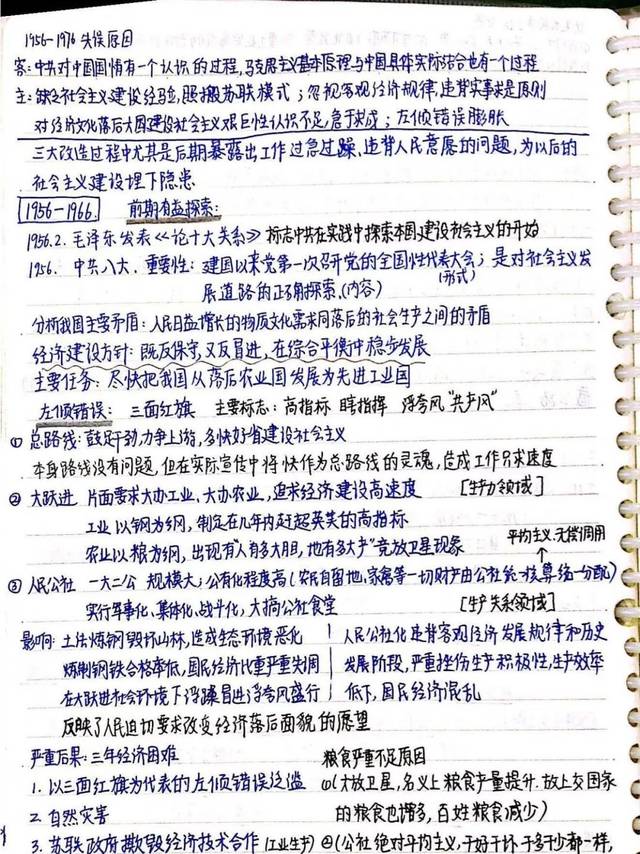 1956-1976 失误原因
客:中共对中国国情有一个认识的过程,马克思主义基本原理与中国具体实际结合也有一个过程
主:缺乏社会主义建设经验,照搬苏联模式;忽视客观经济规律,违背实事求是原则
对经济文化落后大国建设社会主义艰巨性认识不足,急于求成;左倾错误膨胀
三大改造过程中尤其是后期暴露出工作过急过躁、违背人民意愿的问题,为以后的
社会主义建设埋下隐患
1956-1966. 前期有益探索:
1956.2.毛泽东发表《论十大关系》标志中共在实践中探索本国建设社会主义的开始
1956. 中共八大.重要性:建国以来党第一次召开党的全国性代表大会;是对社会主义发
(形式)
展道路的正确探索.(内容)
分析我国主要矛盾:人民日益增长的物质文化需求同落后的社会生产之间的矛盾
经济建设方针:既反保守,又反冒进,在综合平衡中稳步发展
主要任务:尽快把我国从落后农业国发展为先进工业国
左倾错误: 三面红旗 主要标志:高指标 瞎指挥 浮夸风 "共产风"
① 总路线:鼓足干劲,力争上游,多快好省建设社会主义
本身路线没有问题,但在实际宣传中将快作为总路线的灵魂,造成工作只求速度
② 大跃进 片面要求大办工业、大办农业,追求经济建设高速度 [生产力领域]
工业以钢为纲,制定在几年内赶超英美的高指标
农业以粮为纲,出现"人有多大胆,地有多大产"竞放卫星现象
平均主义.无偿调用
③ 人民公社 一大二公 规模大;公有化程度高(农民自留地,家禽等一切财产由公社统一核算统一分配)
实行军事化、集体化、战斗化,大搞公社食堂 [生产关系领域]
影响:土法炼钢毁坏山林,造成生态环境恶化 | 人民公社化违背客观经济发展规律和历史
炼制钢铁合格率低,国民经济比重严重失调 | 发展阶段,严重挫伤生产积极性,生产效率
在大跃进社会环境下浮躁冒进浮夸风盛行 | 低下,国民经济混乱
反映了人民迫切要求改变经济落后面貌的愿望
严重后果:三年经济困难 粮食严重不足原因
1. 以三面红旗为代表的左倾错误泛滥 ①(大放卫星,名义上粮食产量提升.放上交国家
2. 自然灾害 的粮食也增多,百姓粮食减少)
3. 苏联政府撕毁经济技术合作(工业生产) ②(公社绝对平均主义,干好干坏干多干少都一样,